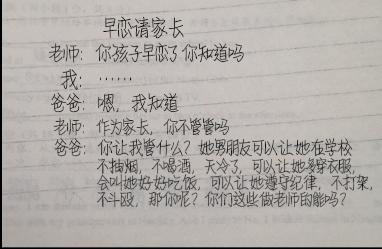 早恋请家长
老师：你孩子早恋了你知道吗
我：……
爸爸：嗯，我知道
老师：作为家长，你不管管吗
爸爸：你让我管什么？她男朋友可以让她在学校
不抽烟，不喝酒，天冷了，可以让她多穿衣服，
会叫她好好吃饭，可以让她遵守纪律，不打架，
不斗殴，那你呢？你们这些做老师的能吗？